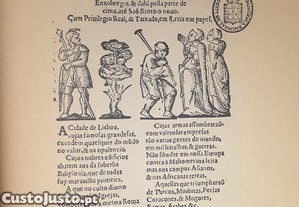 Enxobregas, & dahi pella parte de
cima, até Saõ Bento o nouo.
Com Priuilegio Real, & Taixado, em 8, reis em papel.
A Cidade de Lisboa,
cujas famosas grandezas,
excedem quaesquer do mũdo
no valor, & na opulencia.
Cujos nobres edificios
abatem aos da soberba
Babylonia, que de todos
foy marauilha primeira.
A que no culto diuino
mesma Roma
Cujas armas assombraraõ
com valerosas empresas
taõ varias gentes do mundo
em conquistas, & na guerra.
Naõ sómente em nossa Europa
contra a Mahometina feita
mas nos campos Asianos,
& nas Africanas terras.
Aquellas que triumpharaõ
de Turcos, Moabitas, Persas
Coraçones, & Mogores,
CustoJusto.pt